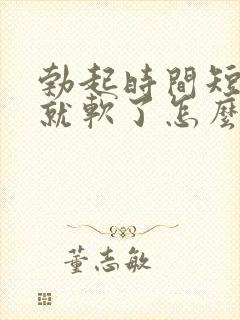 勃起時間短
就軟了怎麼
董志敏